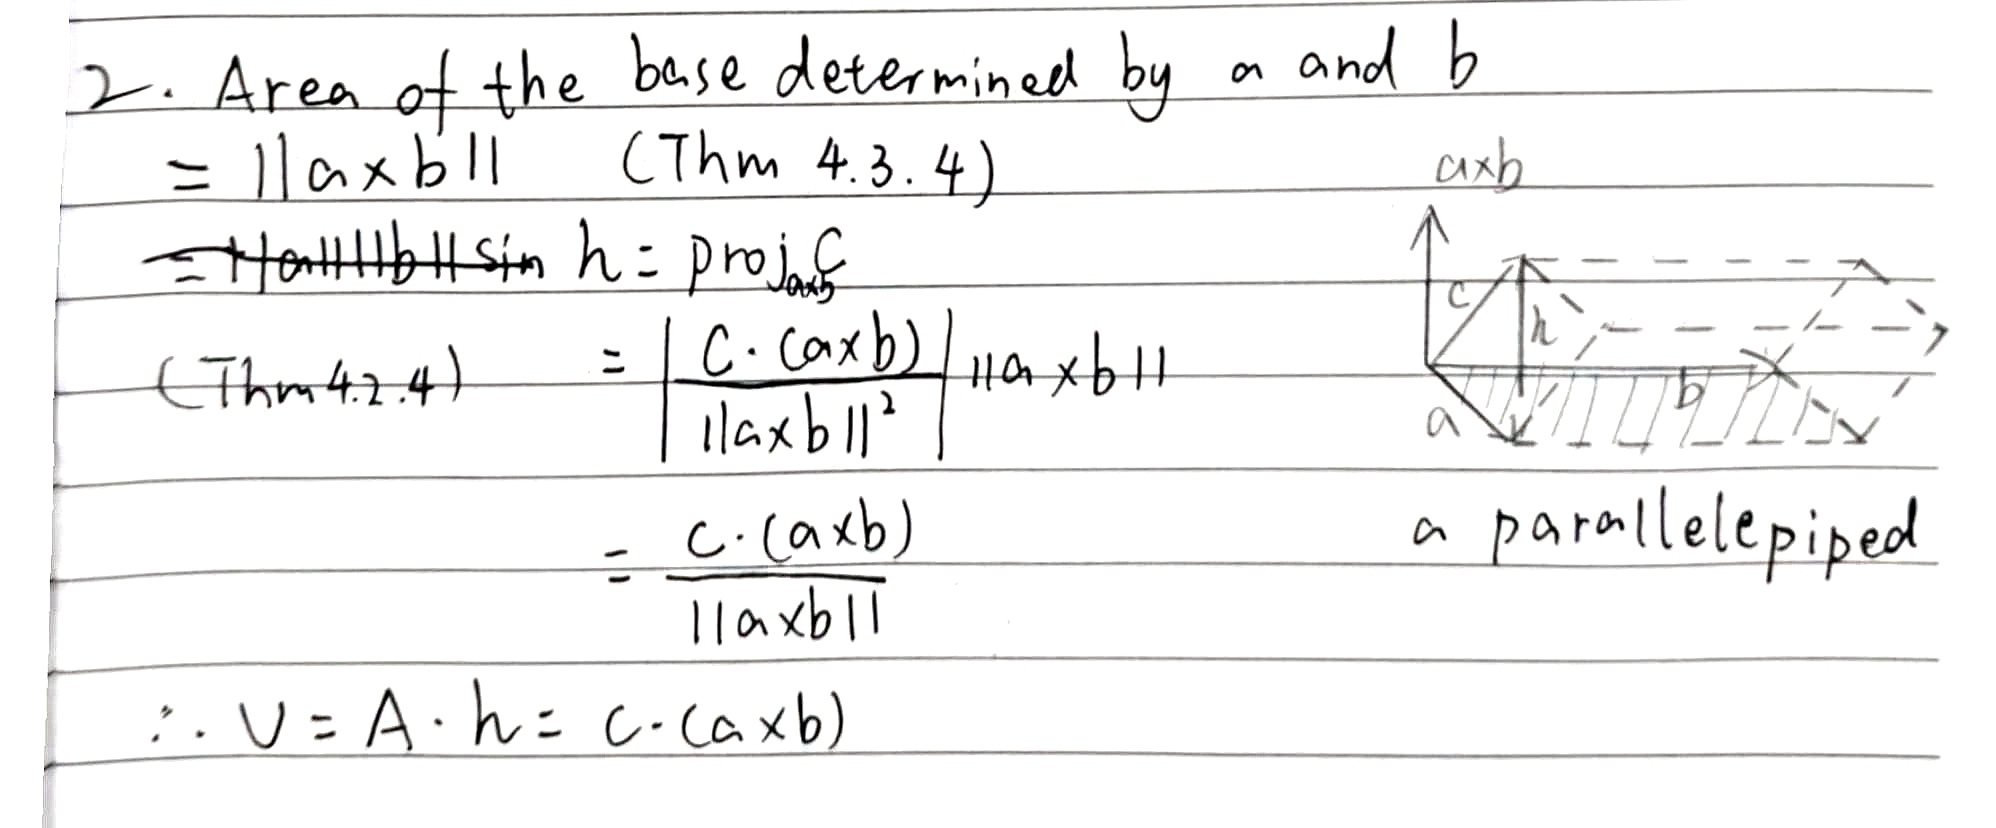 2. Area of the base determined by a and b
= ||a×b|| (Thm 4.3.4)
a×b
= ||a||||b|| sin h = proj_{a×b} c
(Thm 4.2.4) = | c·(a×b) / ||a×b||² | ||a×b||
c
h
b
a
= c·(a×b) / ||a×b||
a parallelepiped
∴ V = A·h = c·(a×b)